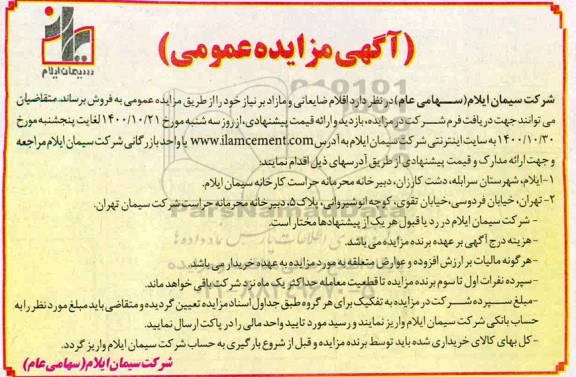 سیمان ایلام
(آگهی مزایده عمومی)
شرکت سیمان ایلام(سهامی عام) در نظر دارد اقلام ضایعاتی و مازاد بر نیاز خود را از طریق مزایده عمومی به فروش برساند. متقاضیان
می توانند جهت دریافت فرم شرکت در مزایده، بازدید و ارائه قیمت پیشنهادی، از روز سه شنبه مورخ ۱۴۰۰/۱۰/۲۱ لغایت پنجشنبه مورخ
۱۴۰۰/۱۰/۳۰ به سایت اینترنتی شرکت سیمان ایلام به آدرس www.ilamcement.com یا واحد بازرگانی شرکت سیمان ایلام مراجعه
و جهت ارائه مدارک و قیمت پیشنهادی از طریق آدرسهای ذیل اقدام نمایند:
۱-ایلام، شهرستان سرابله، دشت کارزان، دبیرخانه محرمانه حراست کارخانه سیمان ایلام.
۲- تهران، خیابان فردوسی، خیابان تقوی، کوچه انوشیروانی، پلاک ۵، دبیرخانه محرمانه حراست شرکت سیمان تهران.
- شرکت سیمان ایلام در رد یا قبول هر یک از پیشنهادها مختار است.
- هزینه درج آگهی بر عهده برنده مزایده می باشد.
- هرگونه مالیات بر ارزش افزوده و عوارض متعلقه به مورد مزایده به عهده خریدار می باشد.
- سپرده نفرات اول تا سوم برنده مزایده تا قطعیت معامله حداکثر یک ماه نزد شرکت باقی خواهد ماند.
- مبلغ سپرده شرکت در مزایده به تفکیک برای هر گروه طبق جداول اسناد مزایده تعیین گردیده و متقاضی باید مبلغ مورد نظر را به
حساب بانکی شرکت سیمان ایلام واریز نمایند و رسید مورد تایید واحد مالی را در پاکت ارسال نمایید.
- کل بهای کالای خریداری شده باید توسط برنده مزایده و قبل از شروع بارگیری به حساب شرکت سیمان ایلام واریز گردد.
شرکت سیمان ایلام(سهامی عام)